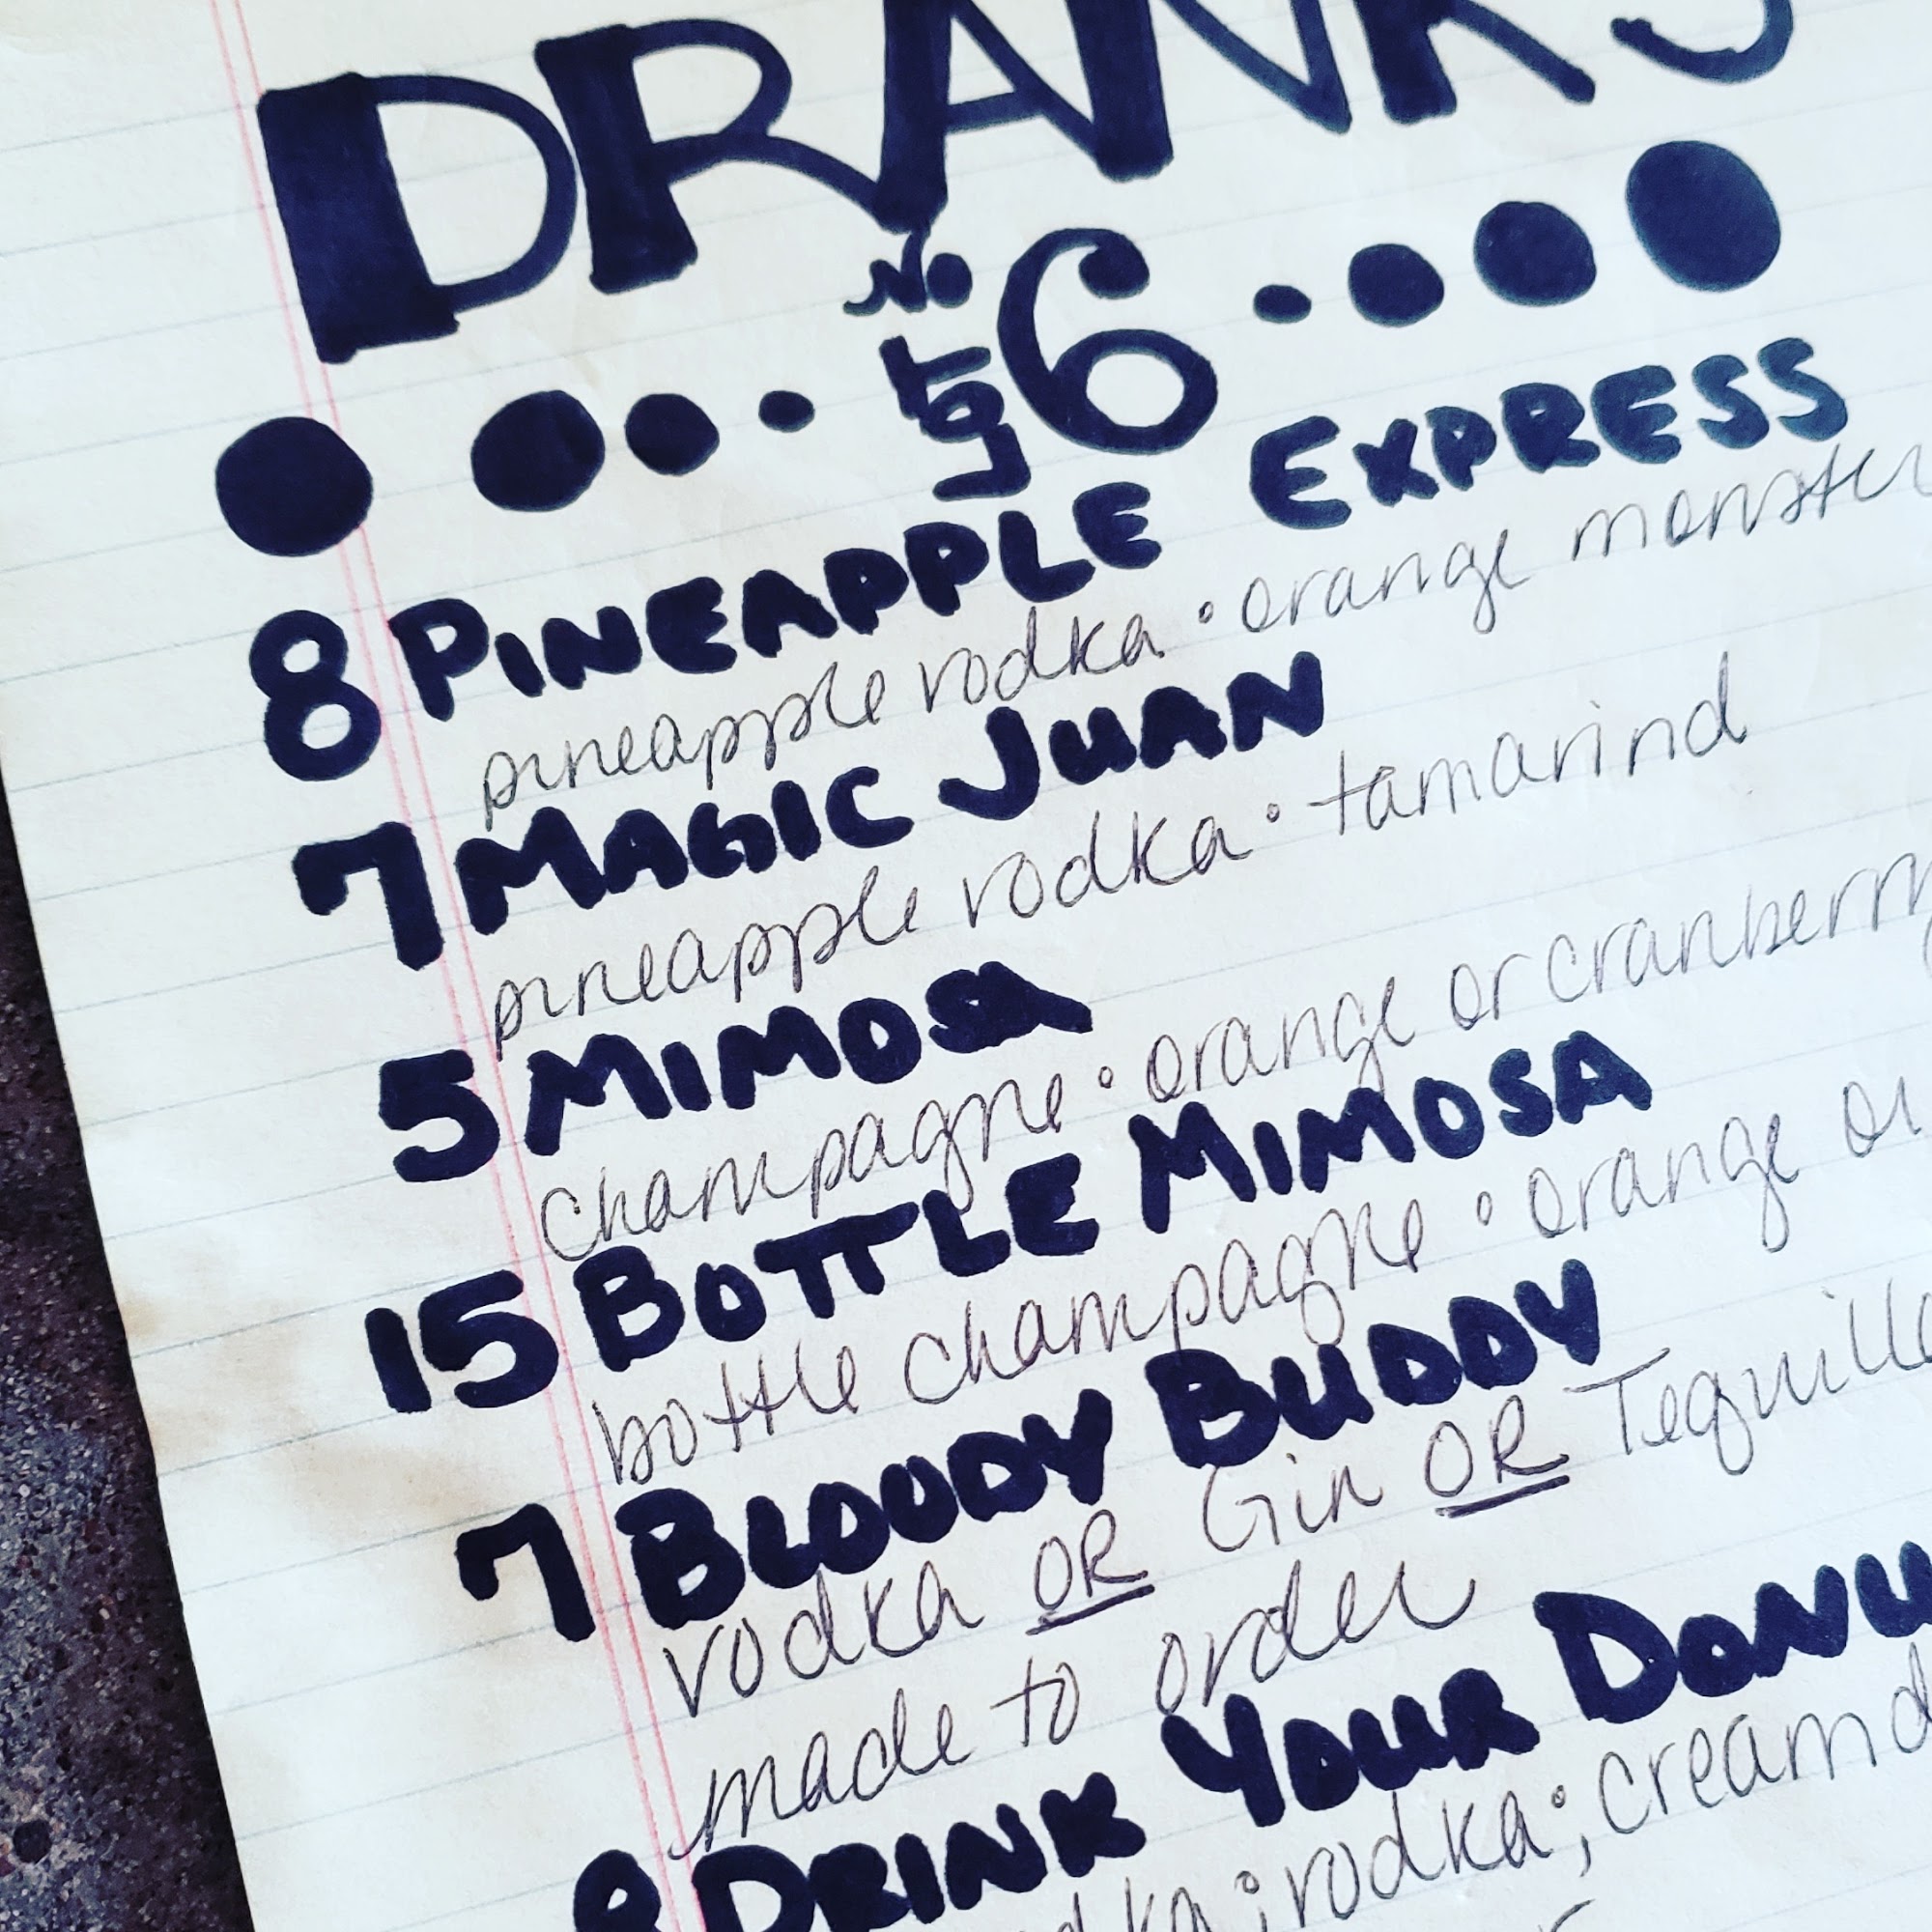 DRANKS
No 6
8 PINEAPPLE EXPRESS
pineapple vodka · orange monster
7 MAGIC JUAN
pineapple vodka · tamarind
5 MIMOSA
champagne · orange or cranberry
15 BOTTLE MIMOSA
bottle champagne · orange or
7 BLOODY BUDDY
vodka OR Gin OR Tequilla
made to order
8 DRINK YOUR DONU
vodka ; cream